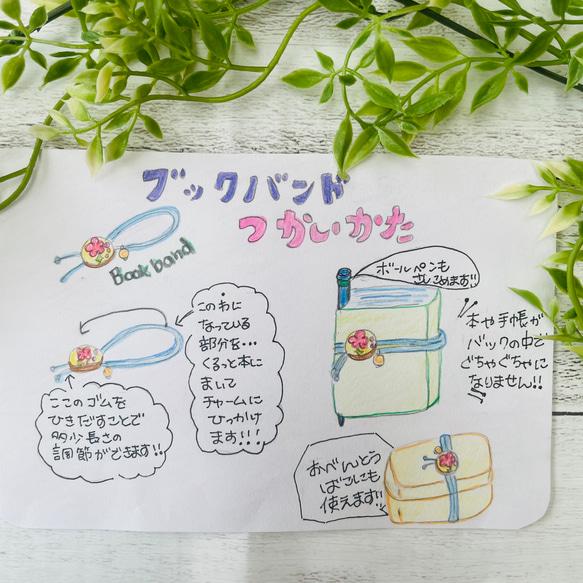 ブックバンド
つかいかた
Book band
このわに
なっている
部分を…
くるっと本に
まいて
チャームに
ひっかけ
ます!!!
ここのゴムを
ひきだすことで
多少長さの
調節ができます!!
ボールペンも
さしこめます!!
本や手帳が
バックの中で
ぐちゃぐちゃに
なりません!!
おべんとう
ばこにも
使えます!!